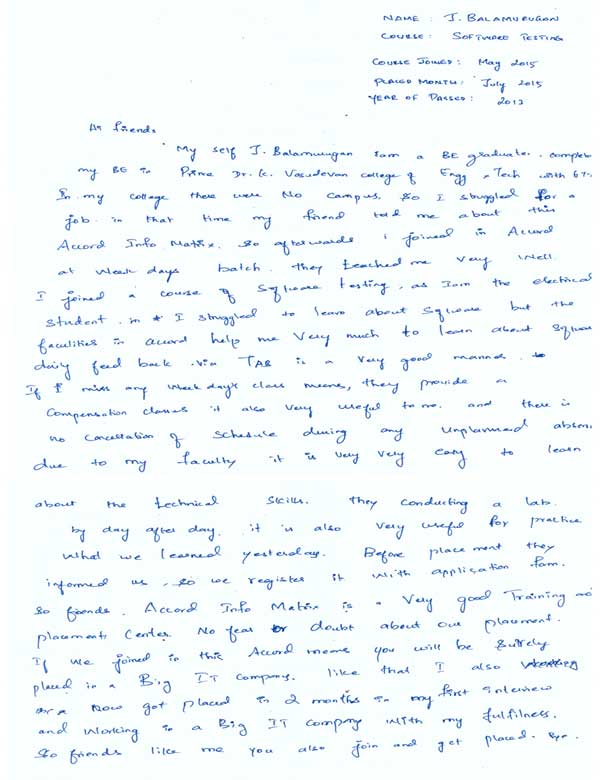 NAME : J. BALAMURUGAN
COURSE : SOFTWARE TESTING
COURSE JOINED : May 2015
PLACED MONTH : July 2015
YEAR OF PASSED : 2013
Hi friends
My self J. Balamurugan Iam a BE graduate. complete
my BE in Prime Dr. K. Vasudevan college of Engg & Tech with 67
In my college there were No campus. So I struggled for a
job. in that time my friend told me about this
Accord Info Matrix. So afterwards i joined in Accord
at week days batch. They teached me very well.
I joined a course of Software testing, as Iam the electrical
student. in I struggled to learn about Software but the
faculties in accord help me very much to learn about Software
daily feed back via TAB is a very good manner.
If I miss any week days class means, they provide a
Compensation classes it also very useful to me. and there is
no cancellation of schedule during any unplanned absen
due to my faculty it is very very easy to learn
about the technical skills. They conducting a lab.
by day after day. it is also very useful for practice
what we learned yesterday. Before placement they
informed us, so we register it with application form.
So friends. Accord Info Matrix is a very good Training and
placements Center. No fear or doubt about our placement.
If we joined in this Accord means you will be Surely
placed in a Big IT company. like that I also
Now got placed in 2 months in my first interview
and working in a Big IT company with my fulfilness.
So friends like me you also join and get placed. Bye.